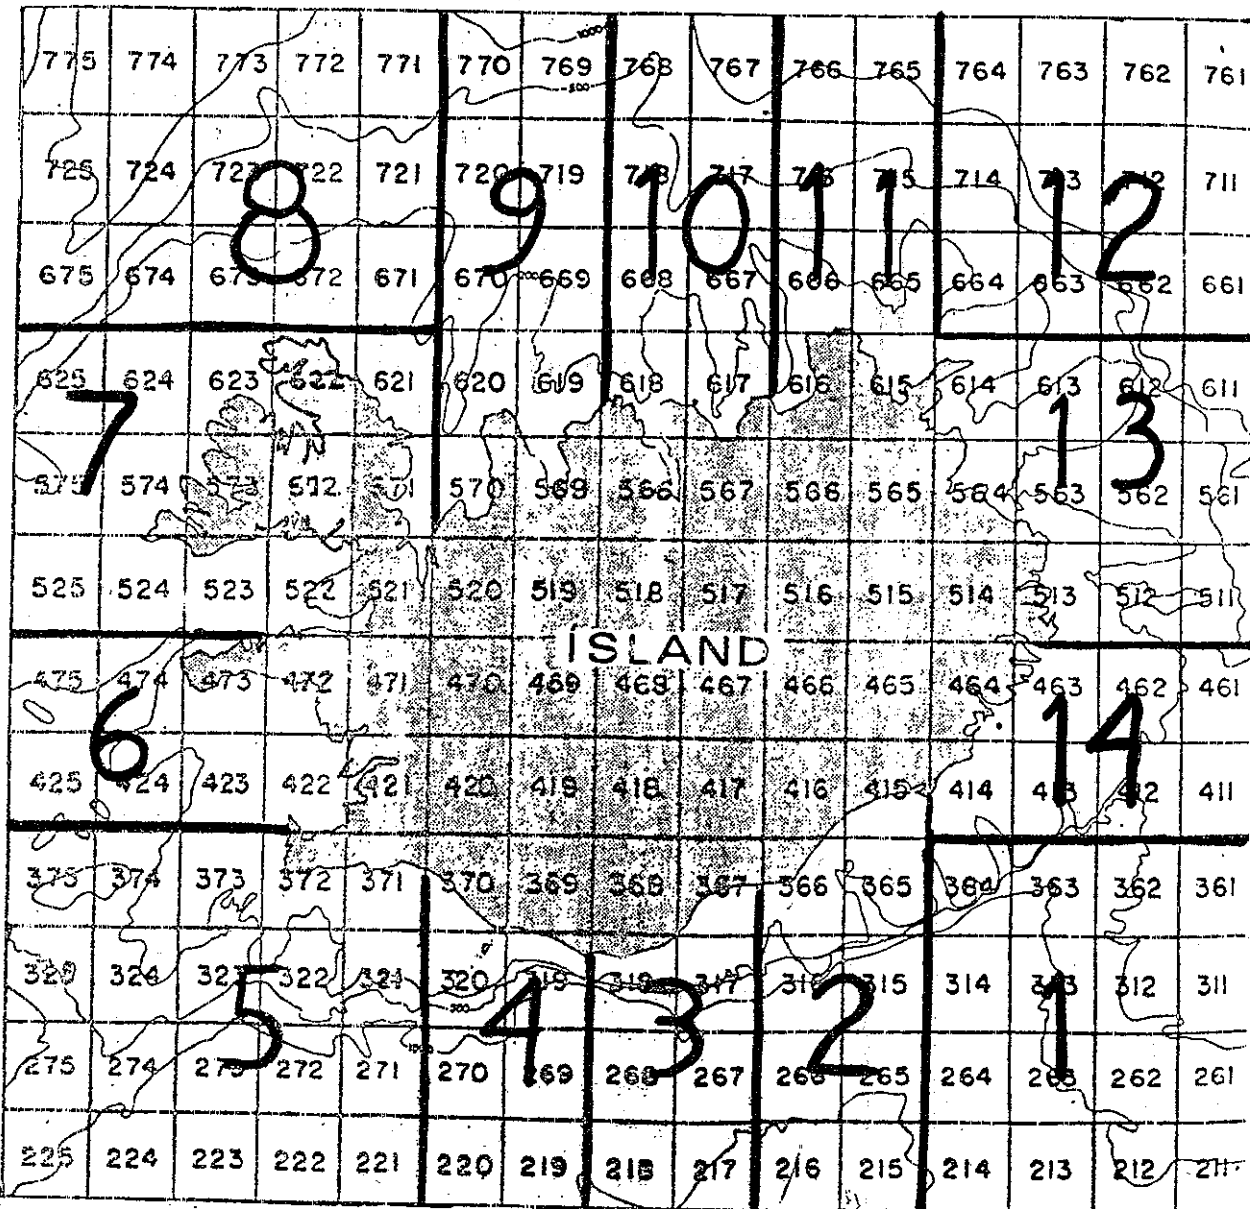 1000
775 774 773 772 771 770 769 768 767 766 765 764 763 762 761
500
725 724 723 722 721 720 719 718 717 716 715 714 713 712 711
8 9 10 11 12
675 674 673 672 671 670 669 668 667 666 665 664 663 662 661
200
625 624 623 622 621 620 619 618 617 616 615 614 613 612 611
7 13
575 574 573 572 571 570 569 568 567 566 565 564 563 562 561
525 524 523 522 521 520 519 518 517 516 515 514 513 512 511
ÍSLAND
475 474 473 472 471 470 469 468 467 466 465 464 463 462 461
6 14
425 424 423 422 421 420 419 418 417 416 415 414 413 412 411
375 374 373 372 371 370 369 368 367 366 365 364 363 362 361
325 324 323 322 321 320 319 318 317 316 315 314 313 312 311
500
5 4 3 2 1
1000
275 274 273 272 271 270 269 268 267 266 265 264 263 262 261
225 224 223 222 221 220 219 218 217 216 215 214 213 212 211